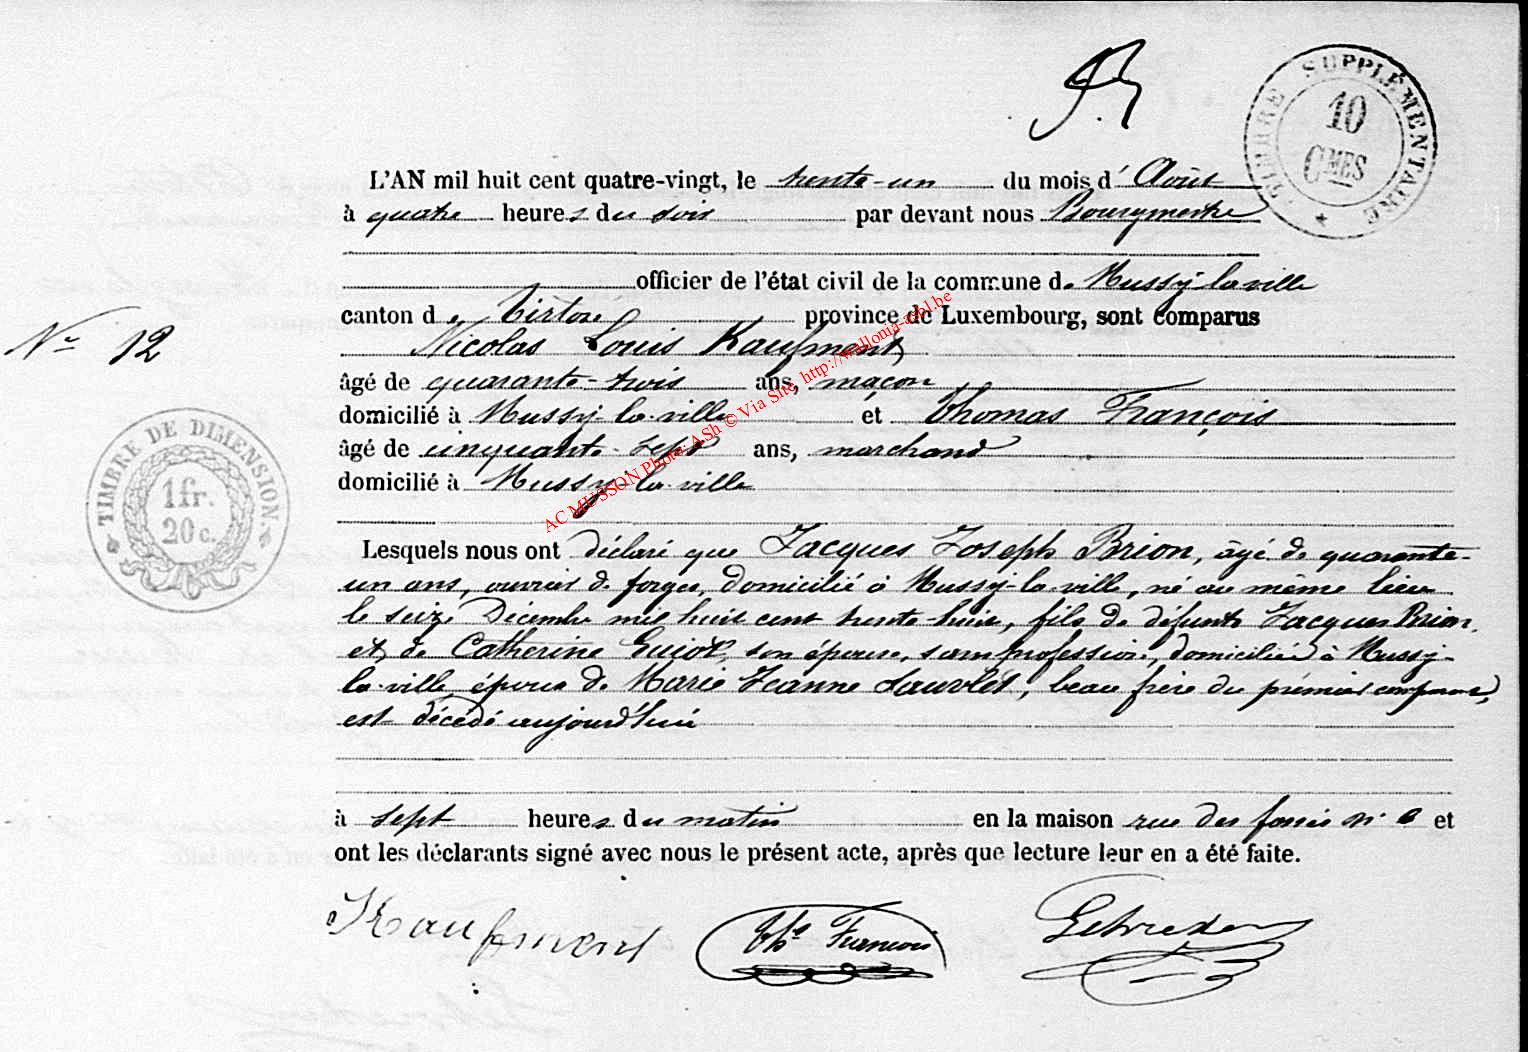 TIMBRE SUPPLÉMENTAIRE
10
CMES
L'AN mil huit cent quatre-vingt, le trente-un du mois d' Août
à quatre heures du soir par devant nous Bourgmestre
officier de l'état civil de la commune de Mussy-la-ville
canton de Virton province de Luxembourg, sont comparus
Nº 12
Nicolas Louis Kaufment
âgé de quarante-trois ans, maçon
domicilié à Mussy-la-ville et Thomas François
âgé de cinquante-sept ans, marchand
domicilié à Mussy-la-ville
TIMBRE DE DIMENSION.
1 fr.
20 c.
AC MUSSON Photo: ASh © Via Site http://wallonia-asbl.be
Lesquels nous ont déclaré que Jacques Joseph Brion, âgé de quarante-
un ans, ouvrier de forges, domicilié à Mussy-la-ville, né au même lieu
le seize Décembre mil huit cent trente-huit, fils de défunts Jacques Brion
et de Catherine Guiot, son épouse, sans profession, domiciliée à Mussy-
la-ville époux de Marie Jeanne Lauvlet, beau frère du premier comparant,
est décédé aujourd'hui
à sept heures du matin en la maison rue des fossés nº et
ont les déclarants signé avec nous le présent acte, après que lecture leur en a été faite.
Kaufment Th. François